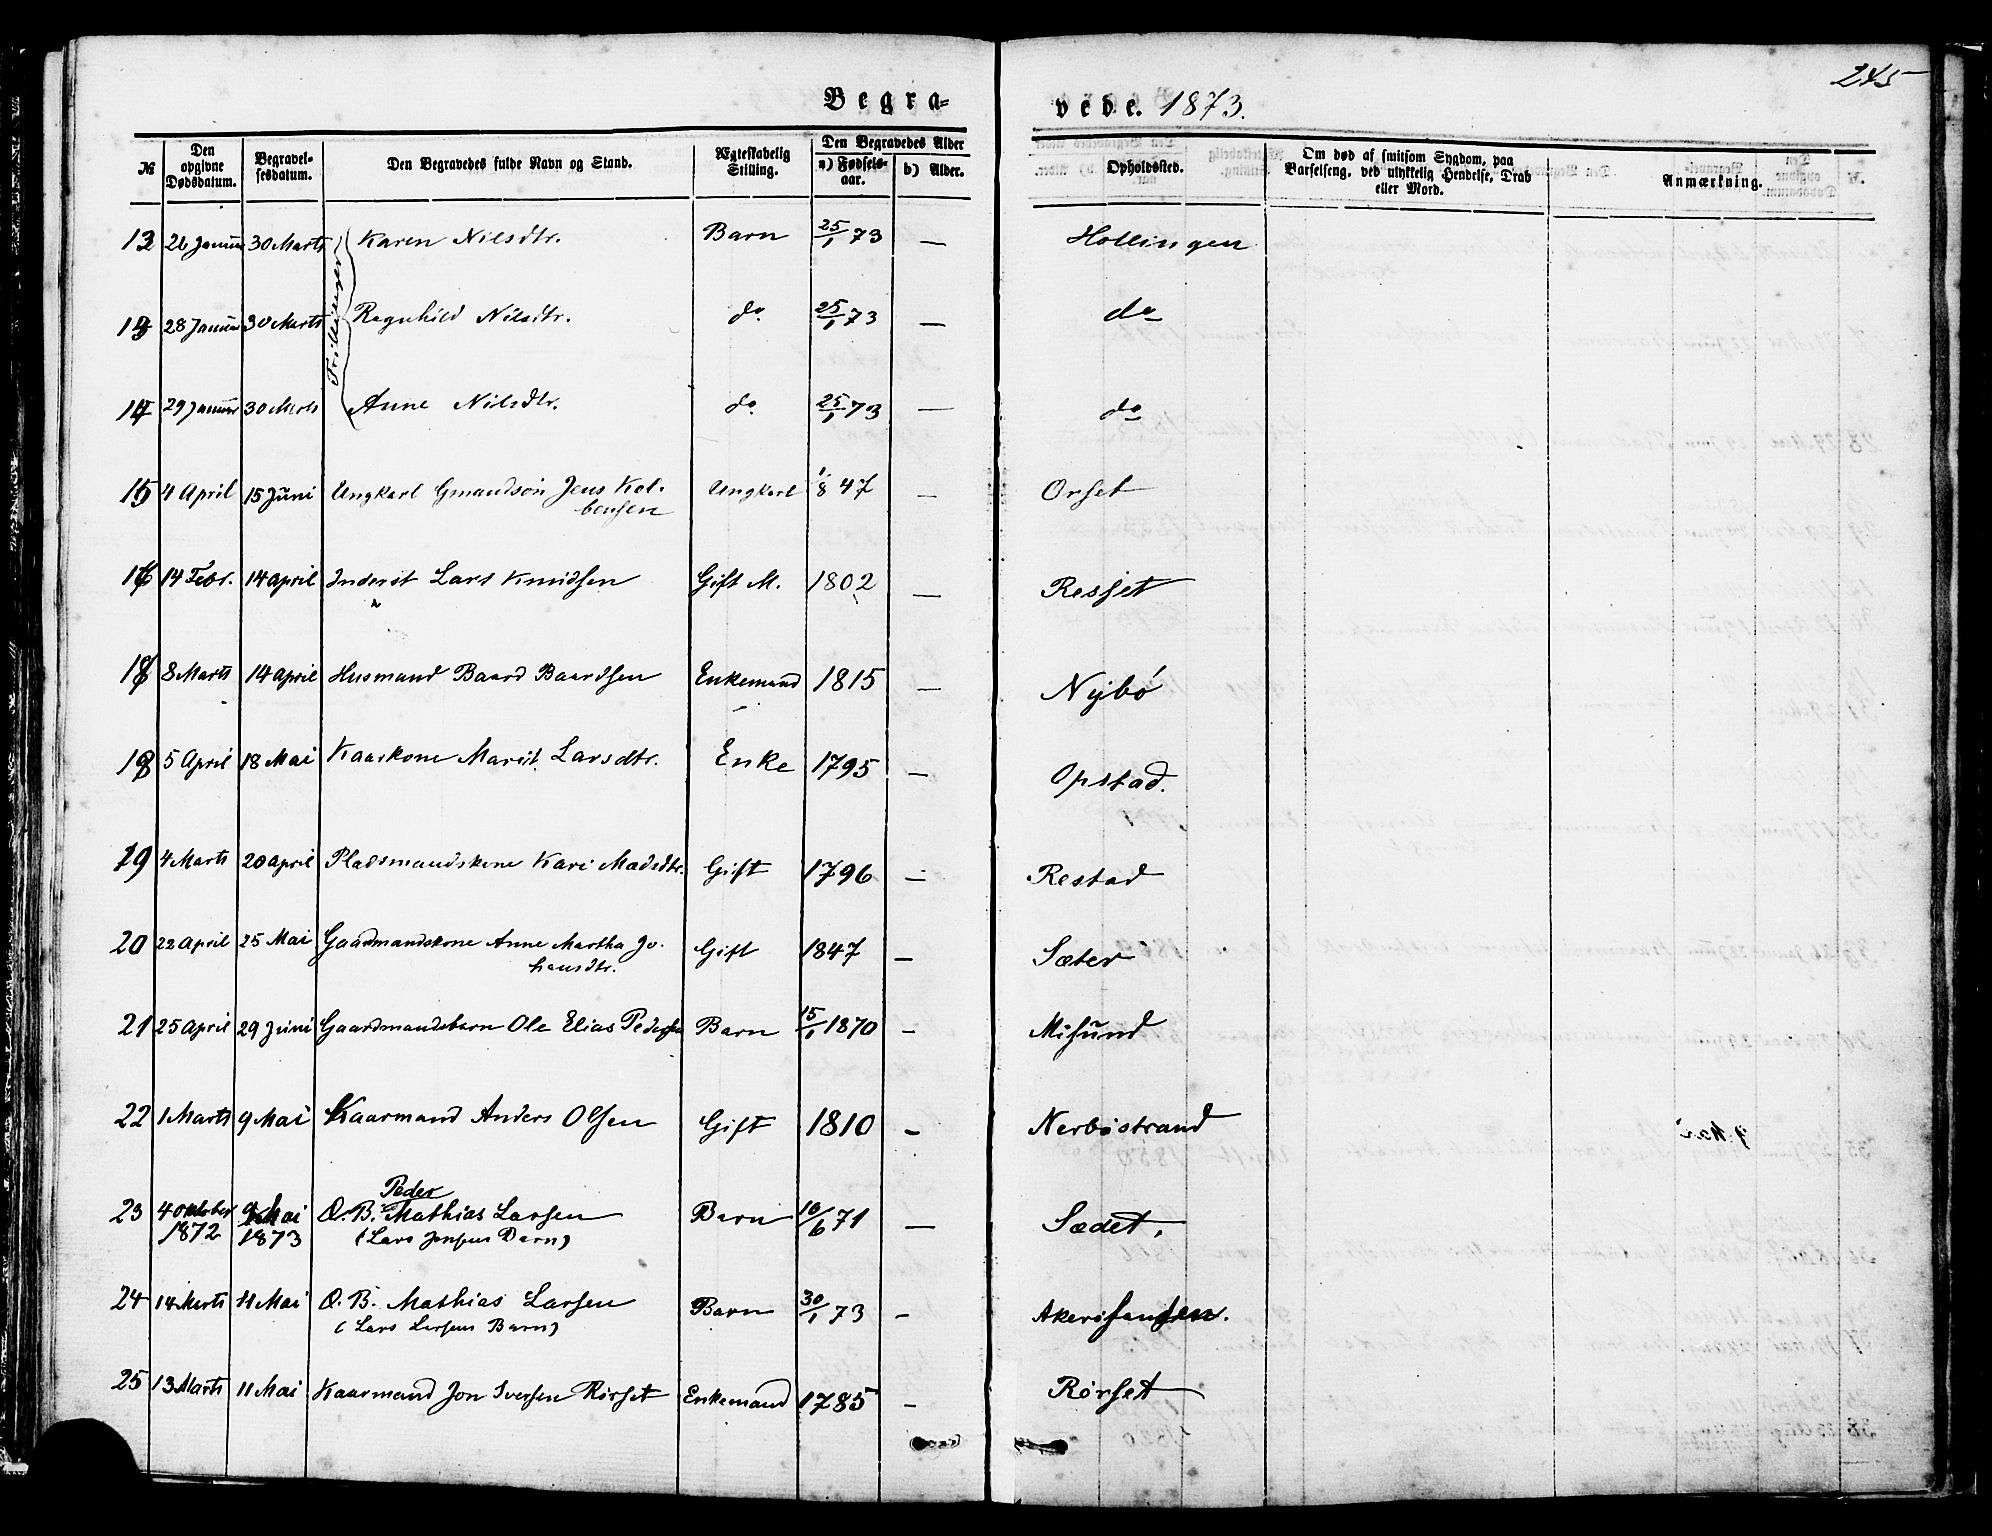 245
Begra-
vede. 1873.
№ Den opgivne Dødsdatum. Begravel-sesdatum. Den Begravedes fulde Navn og Stand. Ægteskabelig Stilling. Den Begravedes Alder a) Fødsels-aar. b) Alder. Opholdssted. Om død af smitsom Sygdom, paa Barselseng, ved ulykkelig Hendelse, Drab eller Mord. Anmærkning.
Trillinger
26 Januar 30 Marts Karen Nilsdtr. Barn 25/1 73 — Hollingen
28 Januar 30 Marts Ragnhild Nilsdtr. do 25/1 73 — do
29 Januar 30 Marts Anne Nilsdtr. do 25/1 73 — do
15 4 April 15 Juni Ungkarl Gmandsøn Jens Kol-
bensen Ungkarl 1/8 47 — Orset
16 14 Febr. 14 April Inderst Lars Knudsen Gift M. 1802 — Resset
8 Marts 14 April Husmand Baard Baardsen Enkemand 1815 — Nybø
18 5 April 18 Mai Kaarkone Marit Larsdtr. Enke 1795 — Opstad.
19 4 Marts 20 April Pladsmandskone Kari Madsdtr. Gift 1796 — Restad
20 22 April 25 Mai Gaardmandskone Anne Martha Jo-
hansdtr. Gift 1847 — Sæter
21 25 April 29 Juni Gaardmandsbarn Ole Elias Pedersen Barn 15/1 1870 — Misund
22 1 Marts 9 Mai Kaarmand Anders Olsen Gift 1810 — Nerbøstrand
Peder
23 4 Oktober 9 Mai O. B. Mathias Larsen Barn 10/6 71 — Sædet.
1872 1873 (Lars Jensens Barn)
24 14 Marts 11 Mai O. B. Mathias Larsen Barn 30/1 73 — Akerøsanden.
(Lars Larsens Barn)
25 13 Marts 11 Mai Kaarmand Jon Iversen Rørset Enkemand 1785 — Rørset